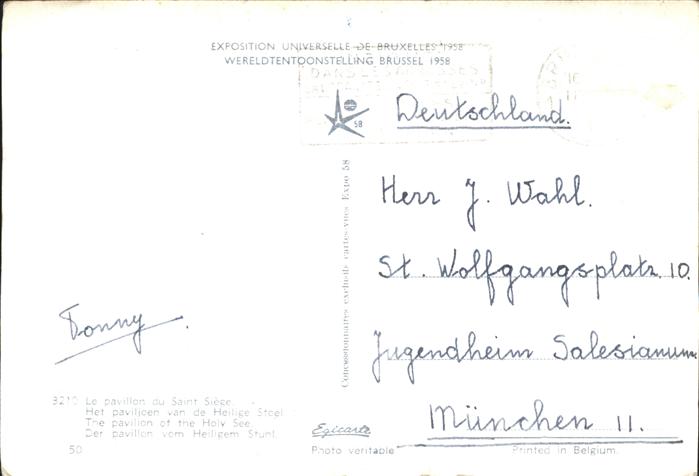 EXPOSITION UNIVERSELLE DE BRUXELLES 1958
WERELDTENTOONSTELLING BRUSSEL 1958
58
Deutschland.
Herr J. Wahl.
St. Wolfgangsplatz 10.
Jugendheim Salesianum
München 11.
Tonny.
Concessionnaires exclusifs cartes-vues Expo 58
3210 Le pavillon du Saint Siège.
Het paviljoen van de Heilige Stoel.
The pavilion of the Holy See.
Der pavillon vom Heiligem Stunl.
50
Egicarte
Photo veritable
Printed in Belgium.